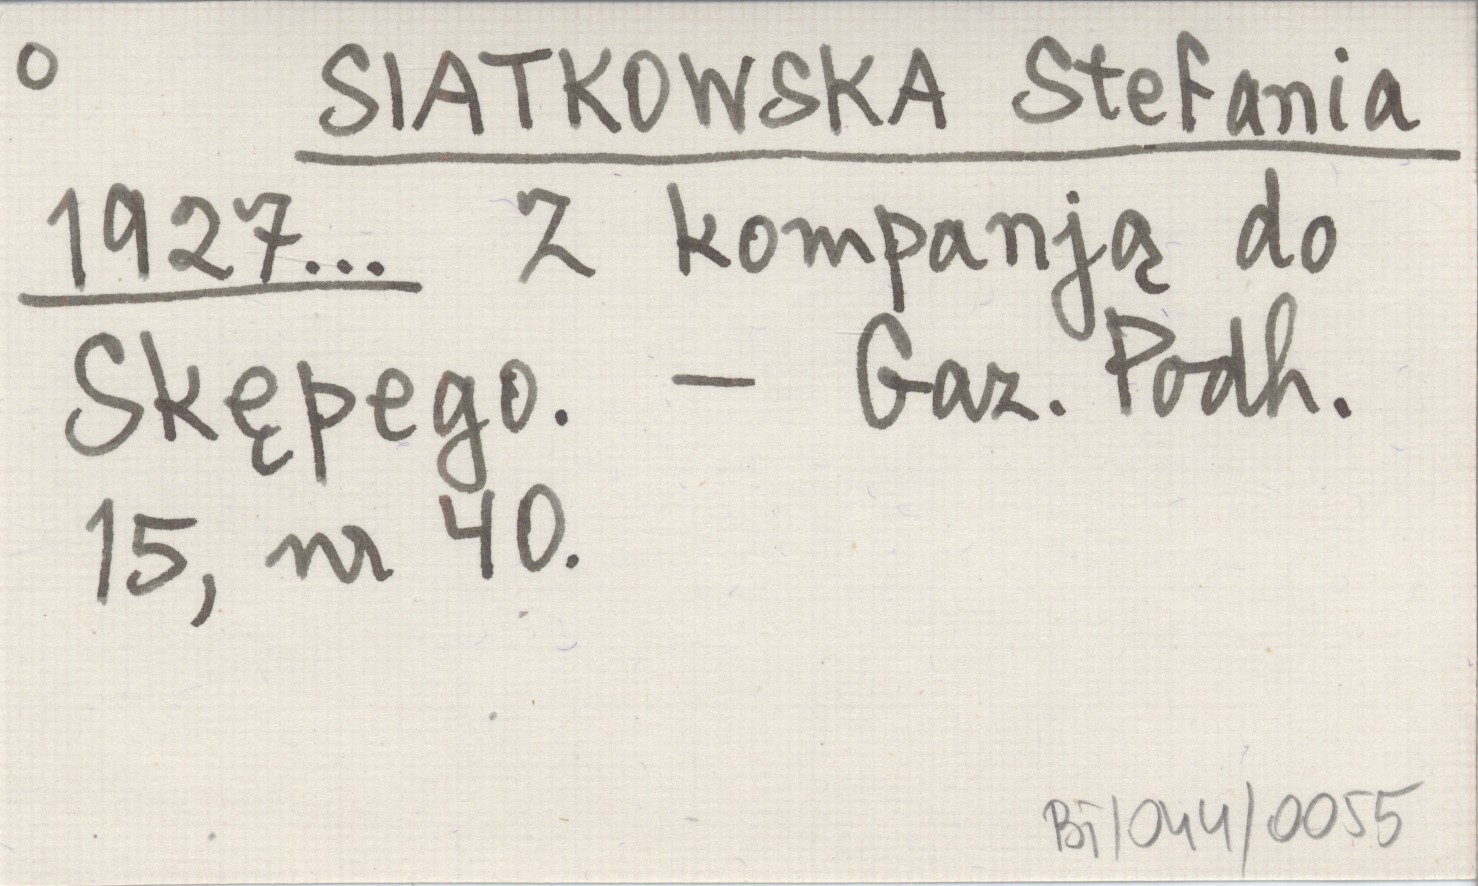 o SIATKOWSKA Stefania
1927... Z kompanją do
Skępego. — Gaz. Podh.
15, nr 40.
BI/044/0055